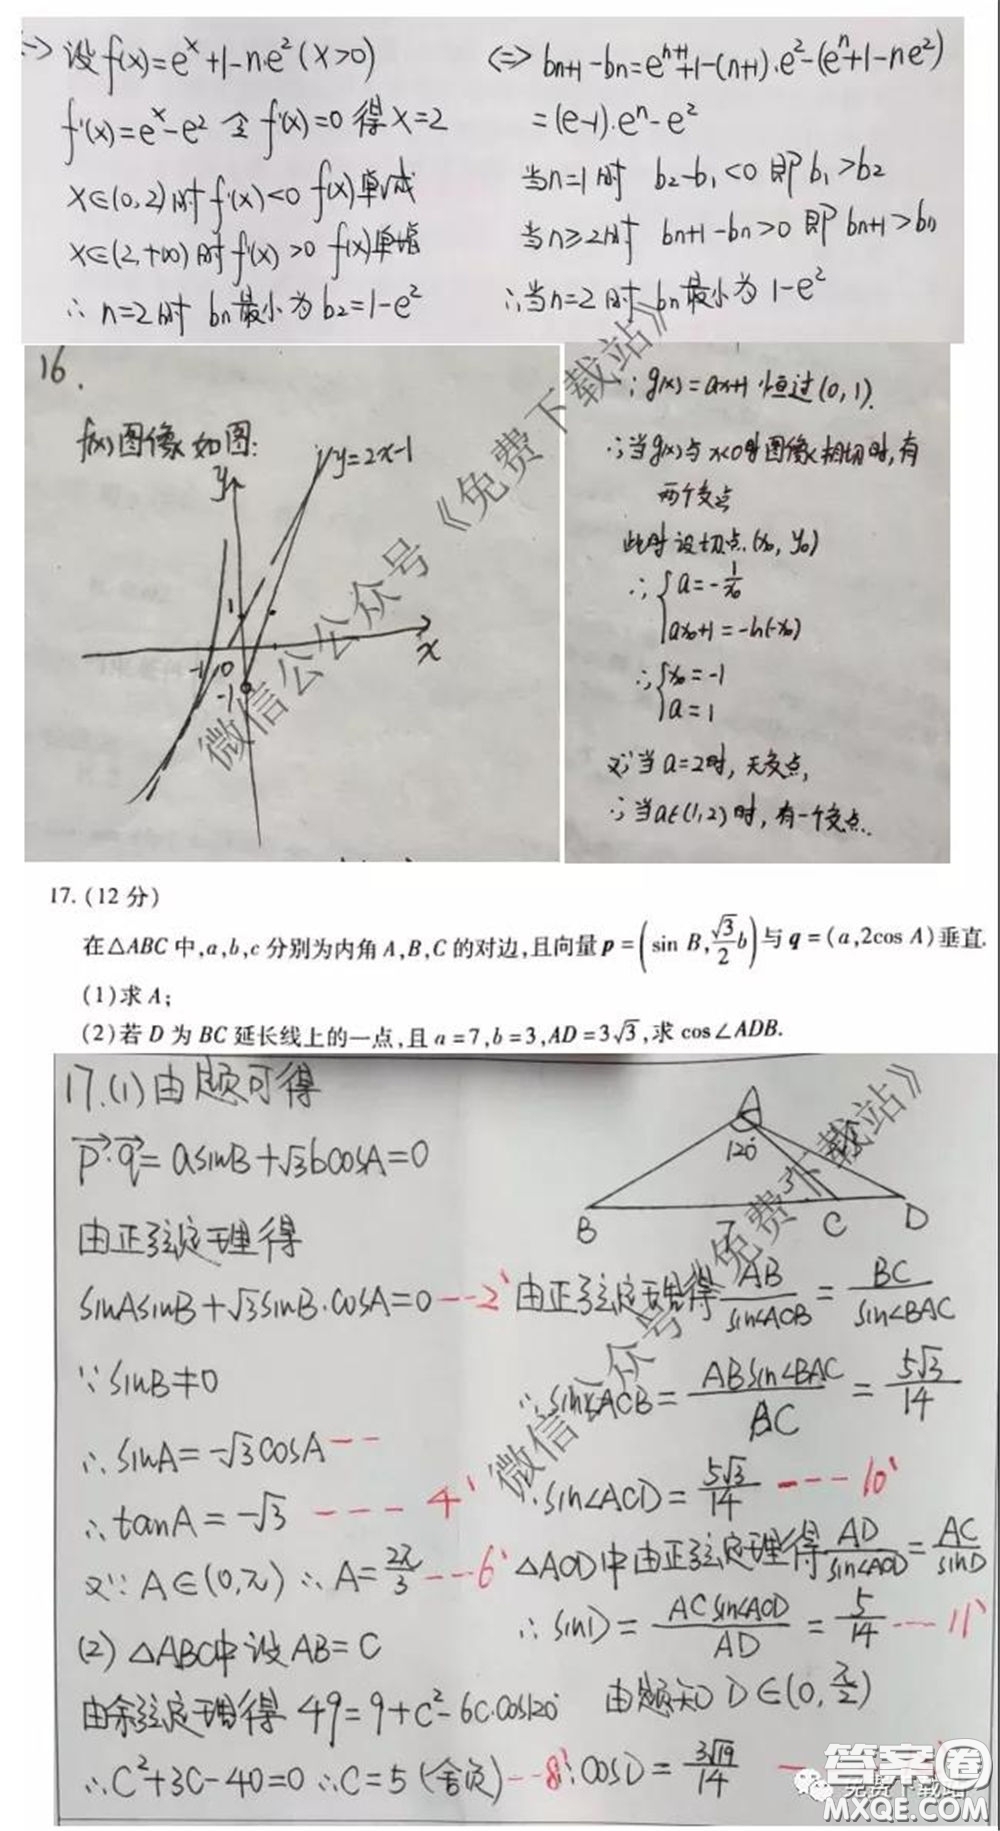 <-> 设f(x)=e^x+1-n·e^2 (x>0)
f'(x)=e^x-e^2 令 f'(x)=0 得 x=2
x∈(0,2)时 f'(x)<0 f(x)单减
x∈(2,+∞)时 f'(x)>0 f(x)单增
∴ n=2时 bn最小为 b2=1-e^2
<=> bn+1-bn=e^{n+1}+1-(n+1)·e^2-(e^n+1-ne^2)
=(e-1)·e^n-e^2
当n=1时 b2-b1<0 即b1>b2
当n≥2时 bn+1-bn>0 即bn+1>bn
∴当n=2时 bn最小为 1-e^2
16.
f(x)图像如图:
y
y=2x-1
1
-1 0
x
-1
∵g(x)=ax+1 恒过(0,1).
∴当g(x)与x<0时图像相切时,有
两个交点
此时设切点(x0, y0)
∴{a=-1/x0
ax0+1=-ln(-x0)
∴{x0=-1
a=1
又∵当a=2时,无交点,
∴当a∈(1,2)时,有一个交点.
微信公众号《免费下载站》
17.(12分)
在△ABC中,a,b,c分别为内角A,B,C的对边,且向量p=(sin B,√3/2 b)与q=(a,2cos A)垂直.
(1)求A;
(2)若D为BC延长线上的一点,且a=7,b=3,AD=3√3,求cos∠ADB.
17.(1)由题可得
p·q=asinB+√3bcosA=0
由正弦定理得
sinAsinB+√3sinB·cosA=0---2'
∵sinB≠0
∴sinA=-√3cosA--
∴tanA=-√3 ---- 4'
又∵A∈(0,π) ∴A=2π/3---6'
(2) △ABC中设AB=c
由余弦定理得 49=9+c^2-6c·cos120°
∴c^2+3c-40=0 ∴c=5 (舍负)--8'
A
120°
3
B 7 C D
由正弦定理得 AB/sin∠ACB = BC/sin∠BAC
∴sin∠ACB = ABsin∠BAC/BC = 5√3/14
∴sin∠ACD = 5√3/14 ---- 10'
△ACD中由正弦定理得 AD/sin∠ACD = AC/sinD
∴sinD = ACsin∠ACD/AD = 5/14 ---- 11'
由题知 D∈(0, π/2)
∴cosD = 3√19/14
微信公众号《免费下载站》
免费下载站
答案圈
MXQE.COM